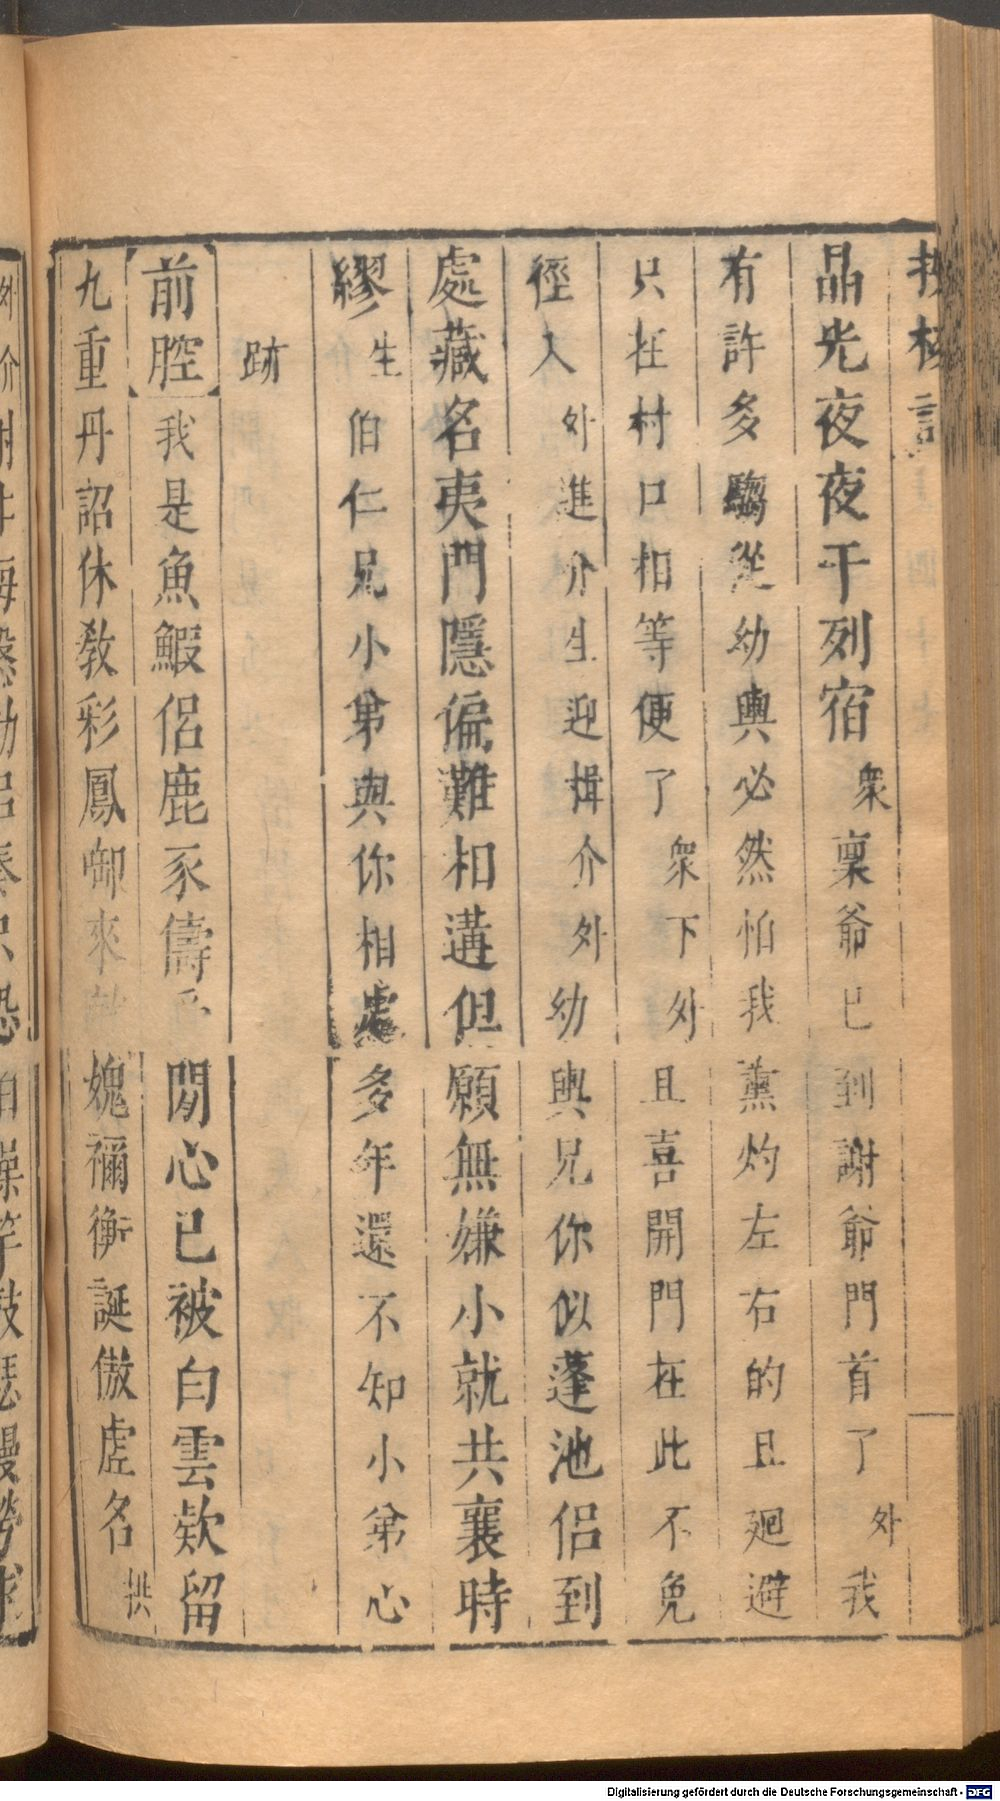 晶光夜夜干列宿衆稟爺已到謝爺門首了外我
有許多騶從幼輿必然怕我薰灼左右的且廻避
只在村口相等便了衆下外且喜開門在此不免
徑入外進介生迎揖介外幼輿兄你似蓬池侶到
處藏名夷門隱偏難相遘但願無嫌小就共襄時
繆生伯仁兄小弟與你相處多年還不知小弟心
跡
前腔我是魚鰕侶鹿豕儔 閒心已被白雲欵留
九重丹詔休敎彩鳳啣來 媿禰衡誕傲虗名拱
Digitalisierung gefördert durch die Deutsche Forschungsgemeinschaft - DFG